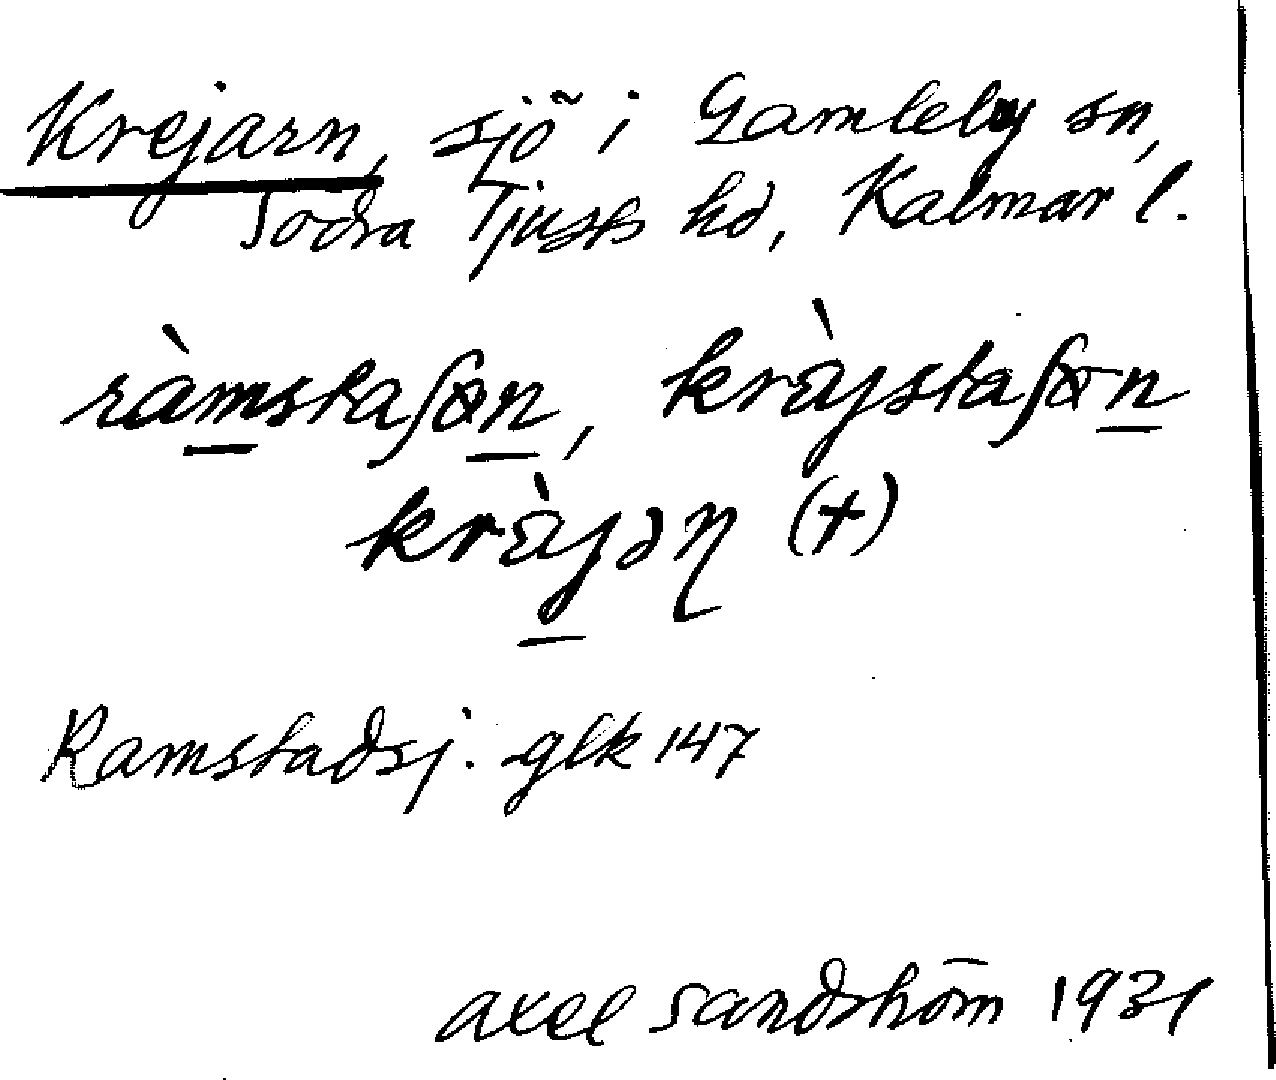 Krejarn, sjö i Gamleby sn,
Södra Tjusts hd, Kalmar l.
ràmstaʃøn, kràjstaʃøn
kràjəɳ (+)
Ramstadsj. glk 147
Axel Sandström 1931